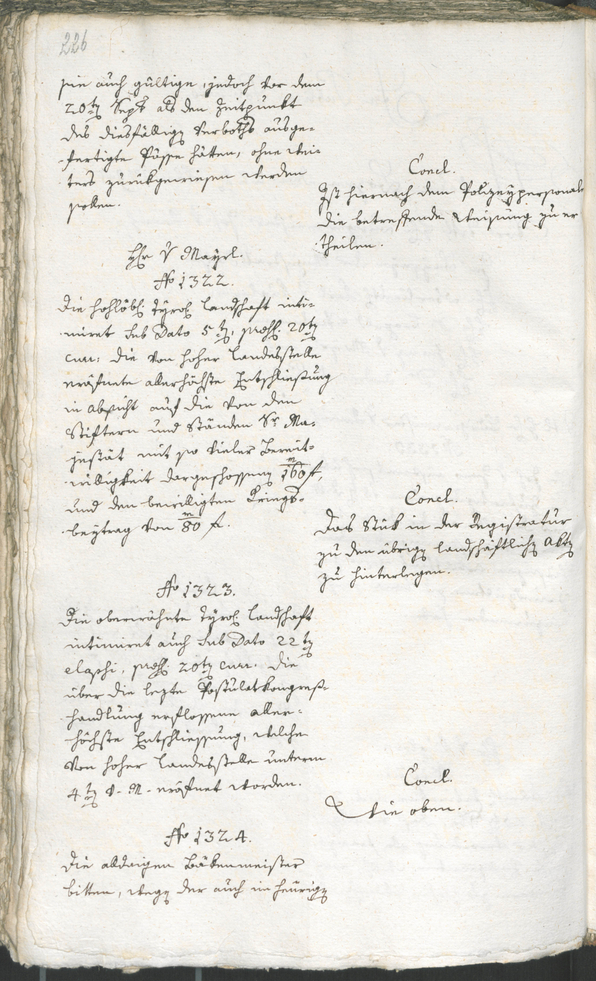 226
sie auch gültige, jedoch vor dem
20tn Septr als den Zeitpunkt
des diesfällign Verboths ausge-
fertigte Pässe hätten, ohne wei-
ters zurückgewiesen werden
sollen.
Concl.
Ist hiernach dem Polizeypersonale
die betreffende Weisung zu er
theilen.
Hr v Mayrl.
No 1322.
Die hochlöbl. tyrol. Landschaft inti-
miret sub Dato 5tn, præs. 20tn
curr. die von hoher Landesstelle
eröfnete allerhöchste Entschliessung
in Absicht auf die von den
Stiftern und Ständen Sr Ma-
jestät mit so vieler Bereit-
willigkeit dargeschossenen 160m f,
und den bewilligten Kriegs-
beytrag von 80m f.
Concl.
Das Stük in der Registratur
zu den übrign landschäftlichn Aktn
zu hinterlegen.
No 1323.
Die oberwähnte tyrol. Landschaft
intimiret auch sub Dato 22tn
elapsi, præs. 20tn curr. die
über die lezte Postulatkongreß-
handlung erflossene aller-
höchste Entschliessung, welche
von hoher Landesstelle unterm
4tn v. M. eröfnet worden.
Concl.
Wie oben.
No 1324.
Die alldaigen Bäkenmeister
bitten, wegn der auch im heurign